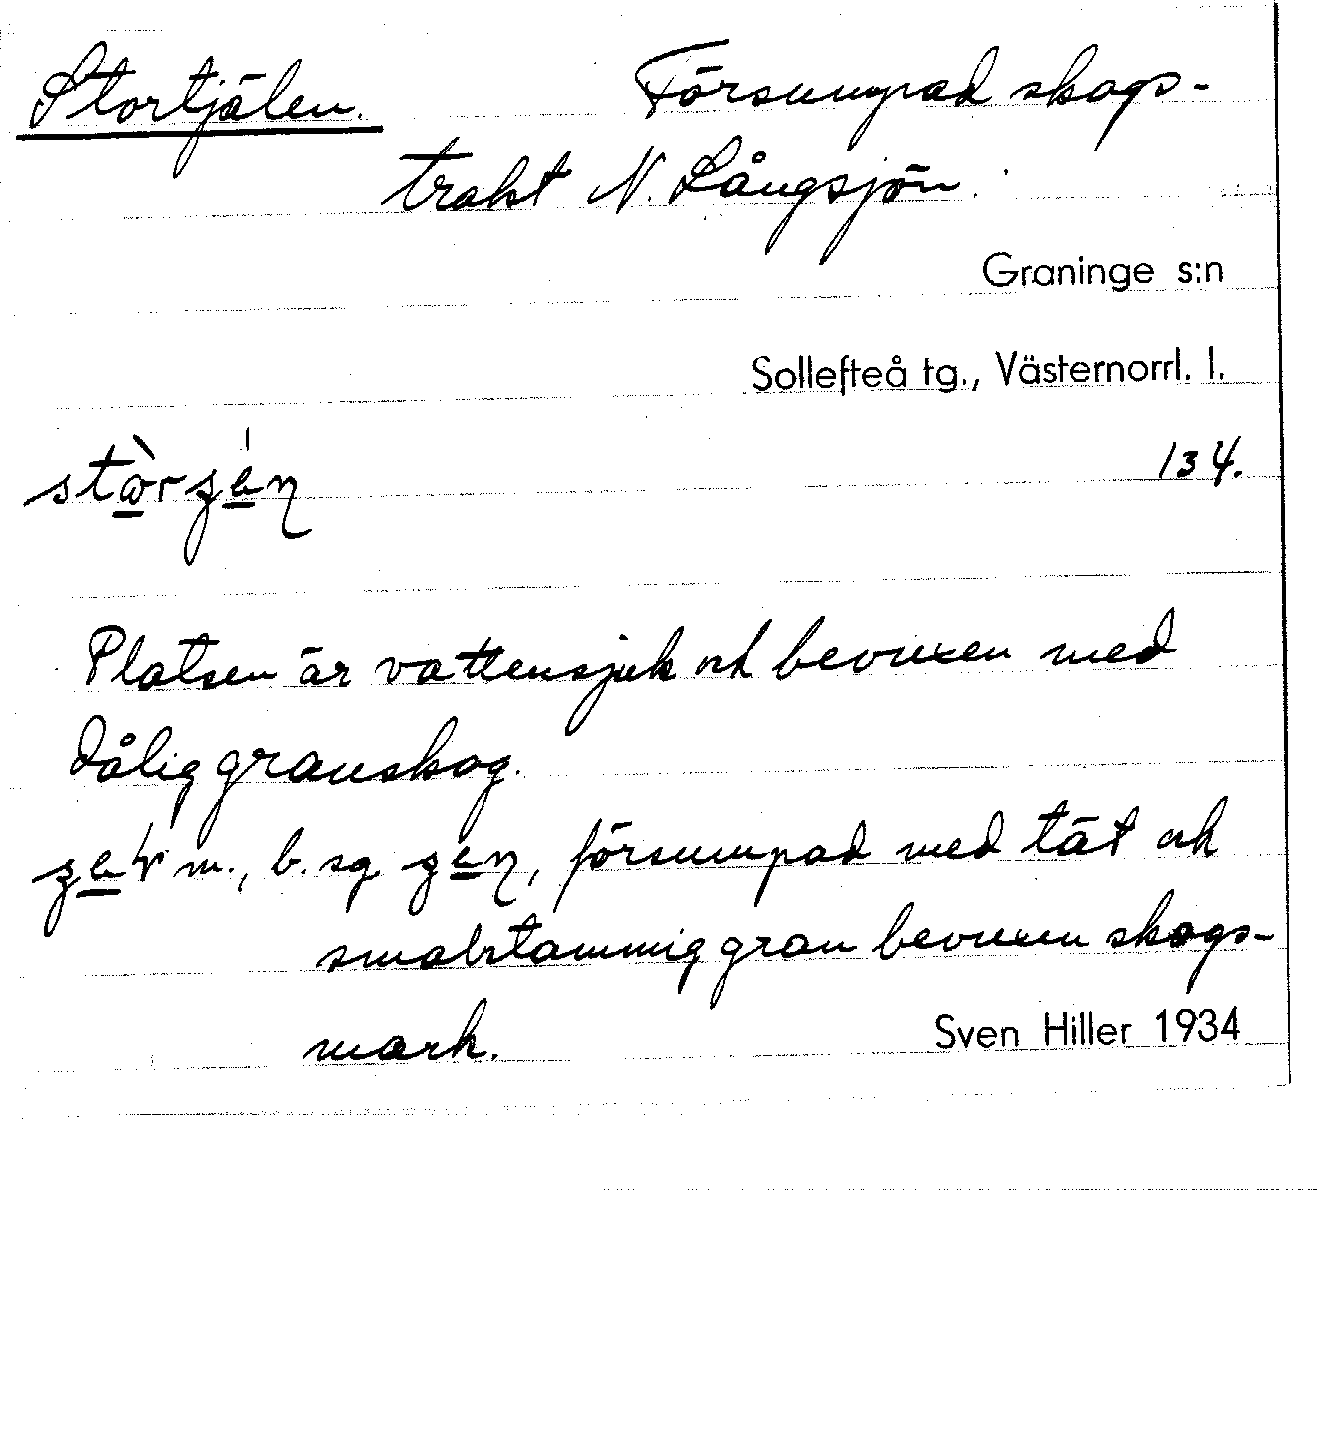 Stortjälen. Försumpad skogs-
trakt N. Långsjön.
Graninge s:n
Sollefteå tg., Västernorrl. l.
134.
Platsen är vattensjuk och bevuxen med
dålig granskog.
m., b. sg. försumpad med tät och
smalstammig gran bevuxen skogs-
mark. Sven Hiller 1934